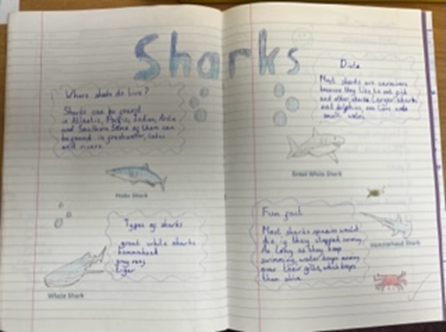 Sharks
Where sharks do Live?
Sharks can be found
in Atlantic, Pacific, Indian, Arctic
and Southern Some of them can
be found in freshwater, lakes
and rivers
Mako Shark
Types of sharks
great white sharks
hammerhead
grey
tiger
Whale Shark
Diets
Most sharks are carnivores
because they like to eat fish
and other sharks Larger sharks
eat dolphins, sea lions and
small whales
Great White Shark
Fun fact
Most sharks species would
die if they stopped moving.
As long as they keep
swimming, water keeps moving
over their gills, which keeps
them alive
Hammerhead Shark